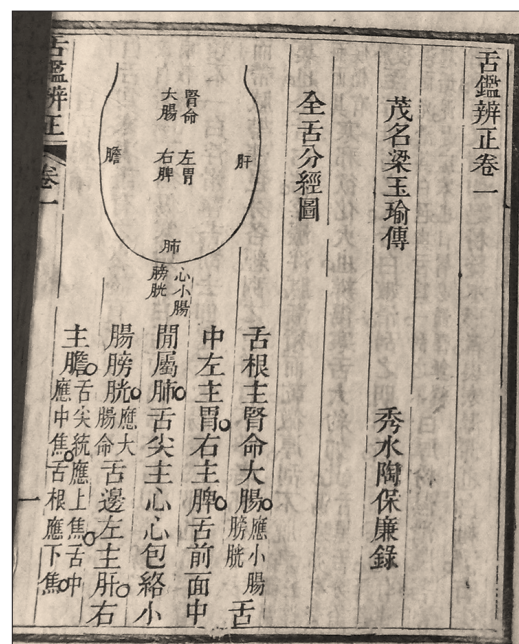 舌鑑辨正卷一
茂名梁玉瑜傳
秀水陶保廉錄
全舌分經圖
腎命
大腸
左胃
右脾
肝
膽
肺
心小腸
膀胱
舌根主腎命大腸應小腸膀胱舌
中左主胃右主脾舌前面中
間屬肺舌尖主心心包絡小
腸膀胱應大腸命舌邊左主肝右
主膽舌尖統應上焦舌中應中焦舌根應下焦
舌鑑辨正
卷一
一